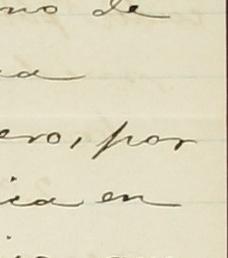 no de
a
ero, por
ica en